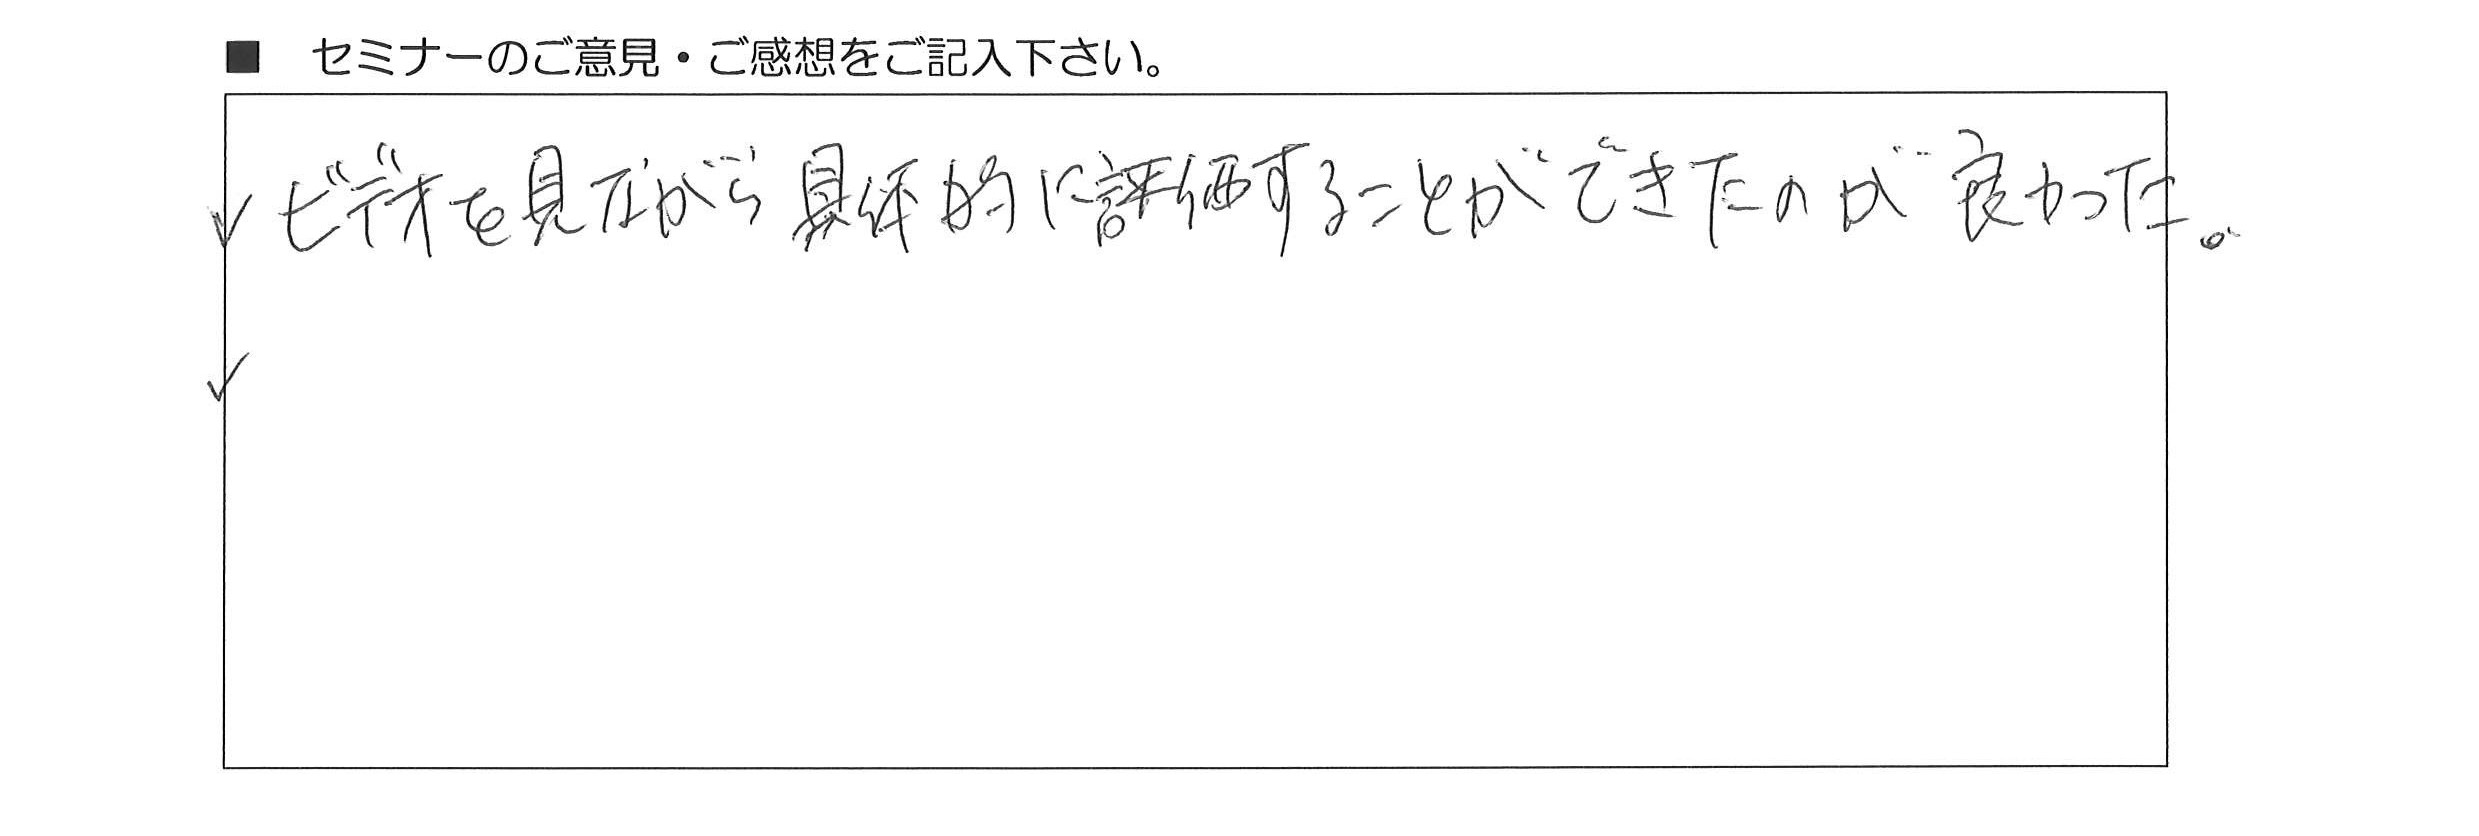 ■ セミナーのご意見・ご感想をご記入下さい。
✓ ビデオを見ながら具体的に評価することができたのが良かった。
✓